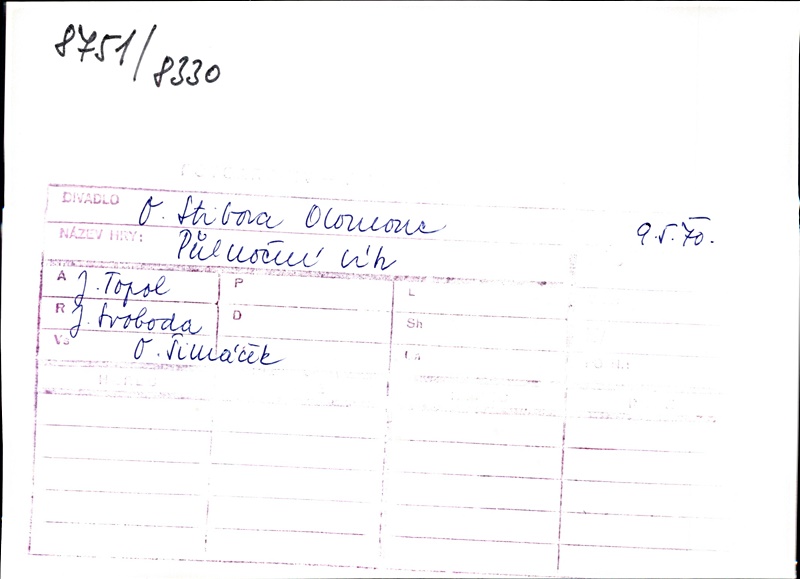 8751/8330
DIVADLO O. Stibora Olomouc
9.5.70.
NÁZEV HRY: Půlnoční vítr
A J. Topol P L
R J. Svoboda D Sh
Vš O. Šimáček